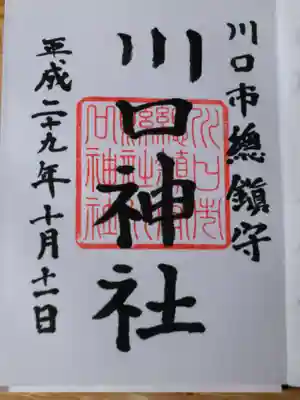 川口市總鎮守
川口神社
平成二十九年十月十一日